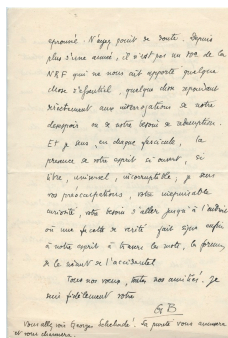 éprouvé. N'ayez point de doute. Depuis
plus d'une année, il n'est pas un no de la
NRF qui ne nous ait apporté quelque
chose d'essentiel, quelque chose répondant
directement aux interrogations de notre
désespoir ou de notre besoin de rédemption.
Et je sens, en chaque fascicule, la
présence de votre esprit si ouvert, si
libre, universel, incorruptible, je sens
vos préoccupations, votre inépuisable
curiosité, votre besoin d'aller jusqu'à
où une facette de vérité fait signe enfin
à notre esprit à travers les mots, les
de l'accidentel
Tous nos vœux, toutes nos amitiés. Je
suis fidèlement votre
GB
Vous allez voir Georges Schehadé! Sa pureté vous
et vous charmera.